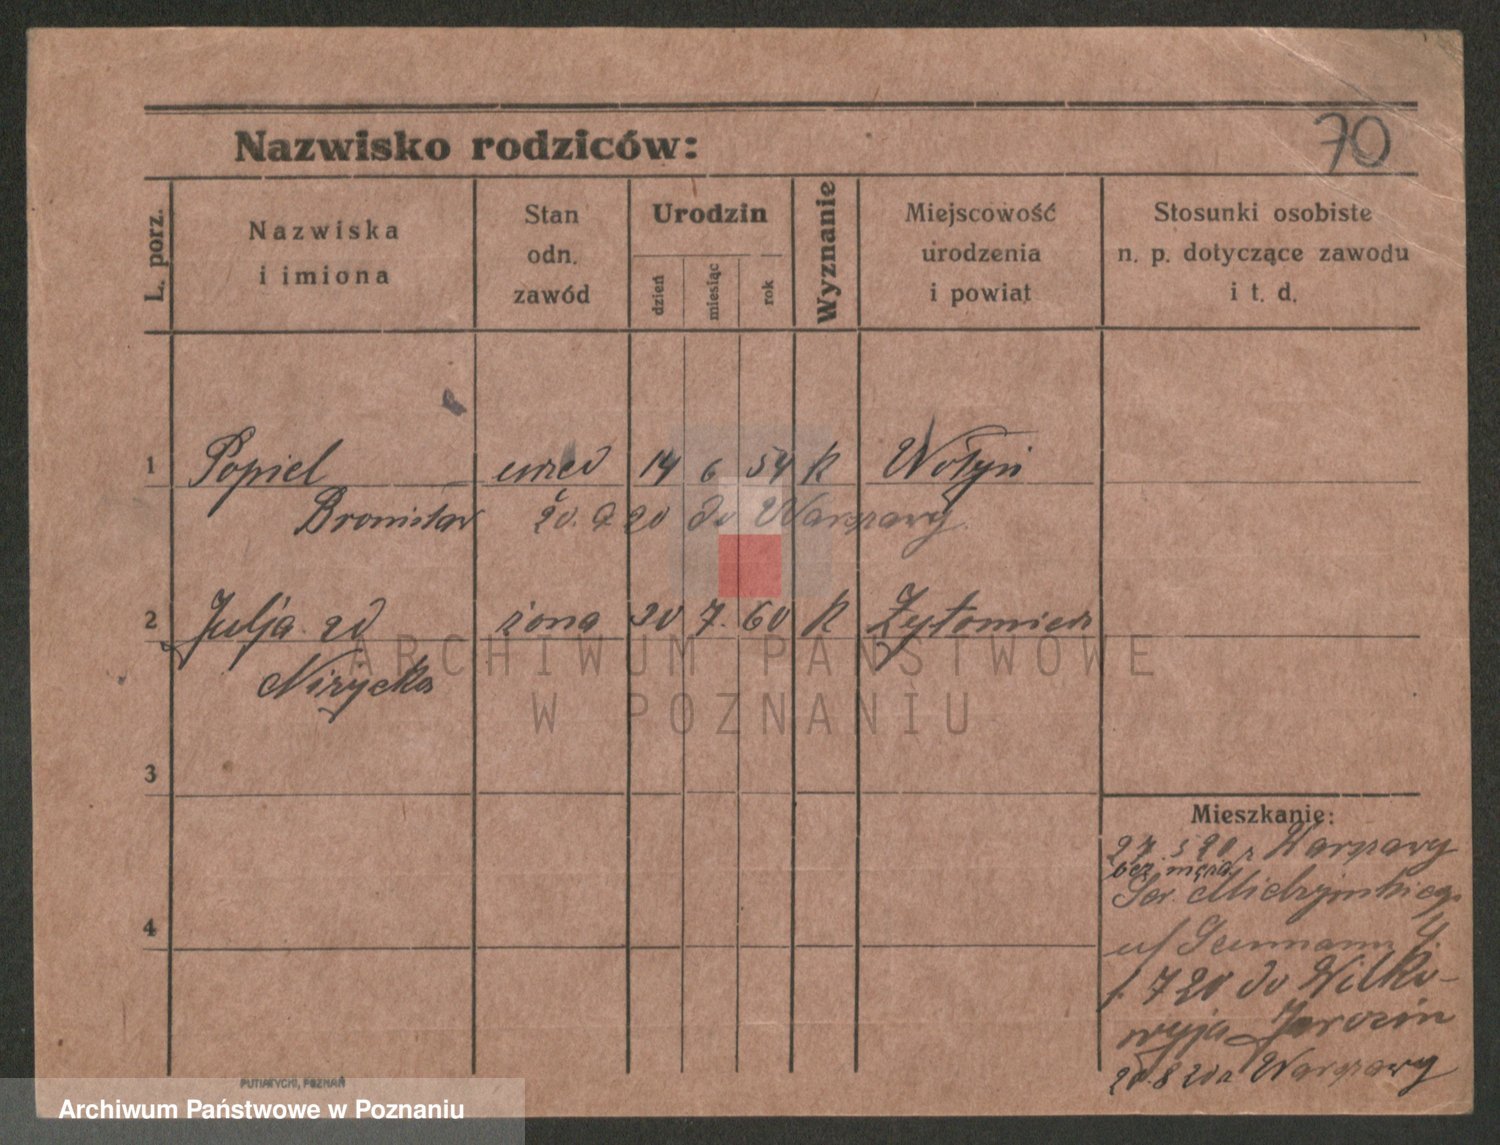 70
Nazwisko rodziców:
L. porz.
Nazwiska
i imiona
Stan
odn.
zawód
Urodzin
dzień
miesiąc
rok
Wyznanie
Miejscowość
urodzenia
i powiat
Stosunki osobiste
n. p. dotyczące zawodu
i t. d.
1 Popiel urzed 14 6 54 k Wołyń
Bronisław 20. 9 20 do Warszawy
2 Julja zd żona 20 7. 60 k Żytomierz
Niżycka
3
4
Mieszkanie:
27. 5 20 z Warszawy
bez męża
Ser. Mielżyńskiego
u/ 4
1. 7 20 do Wilko-
wyja Jarocin
20.8 20 z Warszawy
PUTIATYCKI, POZNAŃ
ARCHIWUM PAŃSTWOWE
W POZNANIU
Archiwum Państwowe w Poznaniu